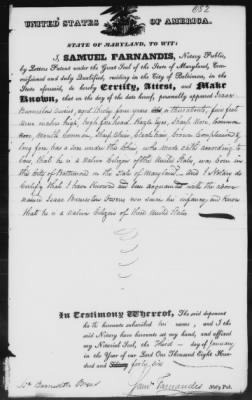 652
UNITED STATES OF AMERICA.
STATE OF MARYLAND, TO WIT:
I, SAMUEL FARNANDIS, Notary Public,
by Letters Patent under the Great Seal of the State of Maryland, Com-
missioned and duly Qualified, residing in the City of Baltimore, in the
State aforesaid, do hereby Certify, Attest, and Make
Known, that on the day of the date hereof, personally appeared Isaac
feet
seven inches high, high forehead, Hazle Eyes, Sharp Nose, Common
Mouth Common, Chin, Brown Complexion &
long face, has a scar under the Chin, who made oath according to
Law, that he is a Native Citizen of the United States, was born in
the City of Baltimore in the State of Maryland and I Notary do
Certify that I have known and been acquainted with the above
named Isaac Owens ever since his infancy and know
that he is a Native Citizen of these United States
In Testimony Whereof, The said deponent
hath hereunto subscribed his name, and I the
said Notary have hereunto set my hand, and affixed
my Notarial Seal, the Third day of January
in the Year of our Lord One Thousand Eight Hundred
and forty six
Saml Farnandis
Noty Pub.